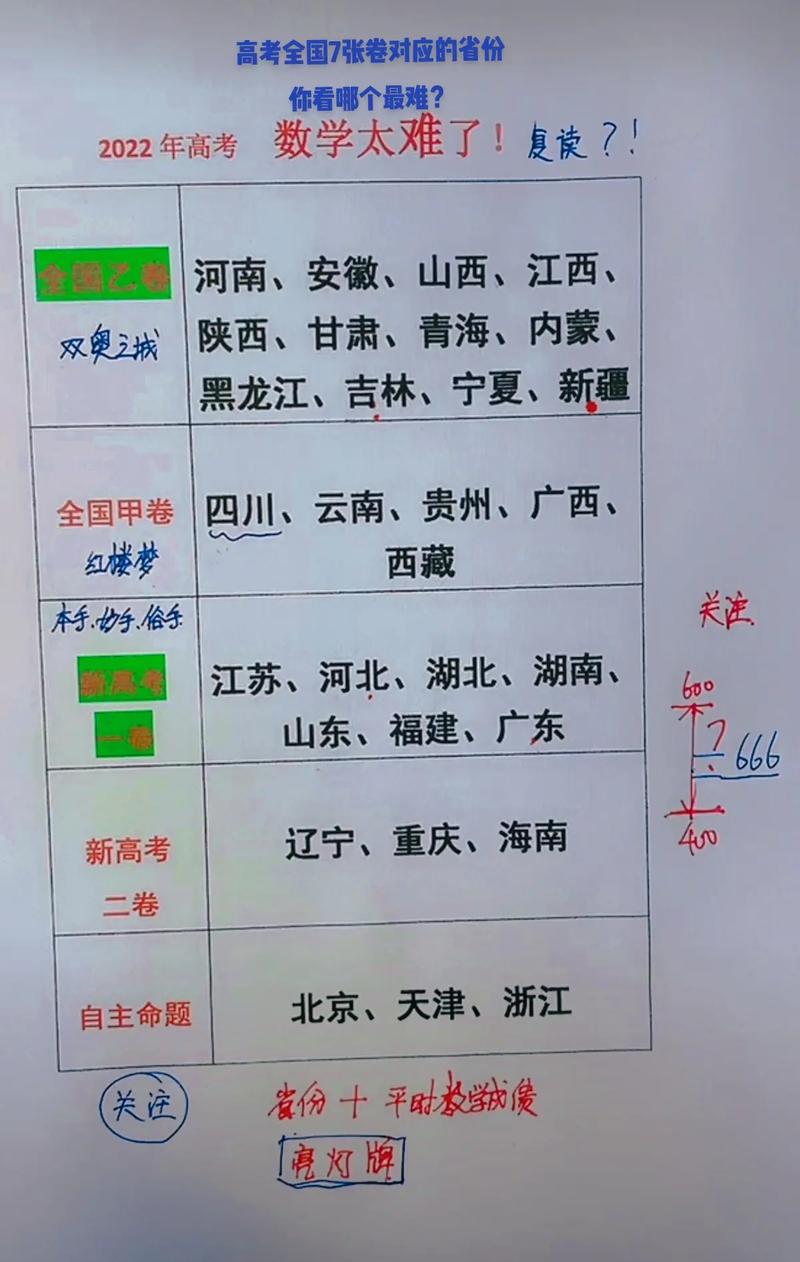 高考全国7张卷对应的省份
你看哪个最难？
2022年高考 数学太难了！复读？！
全国乙卷
双奥之城
河南、安徽、山西、江西、
陕西、甘肃、青海、内蒙、
黑龙江、吉林、宁夏、新疆
全国甲卷
红楼梦
四川、云南、贵州、广西、
西藏
本手、妙手、俗手
新高考
一卷
江苏、河北、湖北、湖南、
山东、福建、广东
关注
600
？
666
400
新高考
二卷
辽宁、重庆、海南
自主命题
北京、天津、浙江
关注
省份＋平时数学成绩
亮灯牌